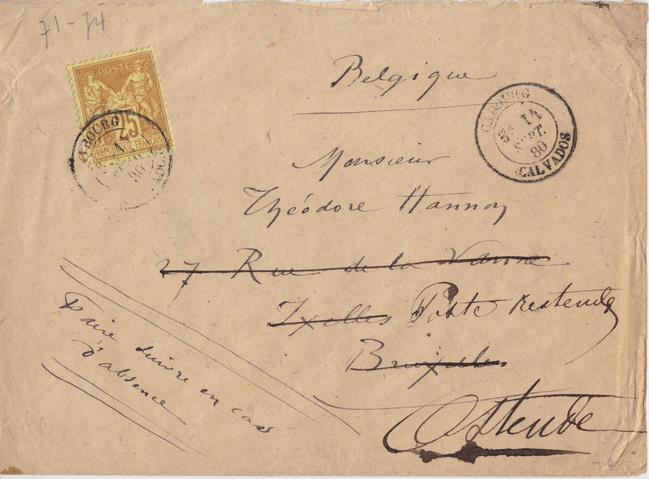 71-74
POSTE
25
Belgique
CABOURG
14
80
CALVADOS
Monsieur
Théodore Hannon
27 Rue de la Vanne
Ixelles Poste Restende
Bruxelles
Ostende
Faire suivre en cas
d'absence